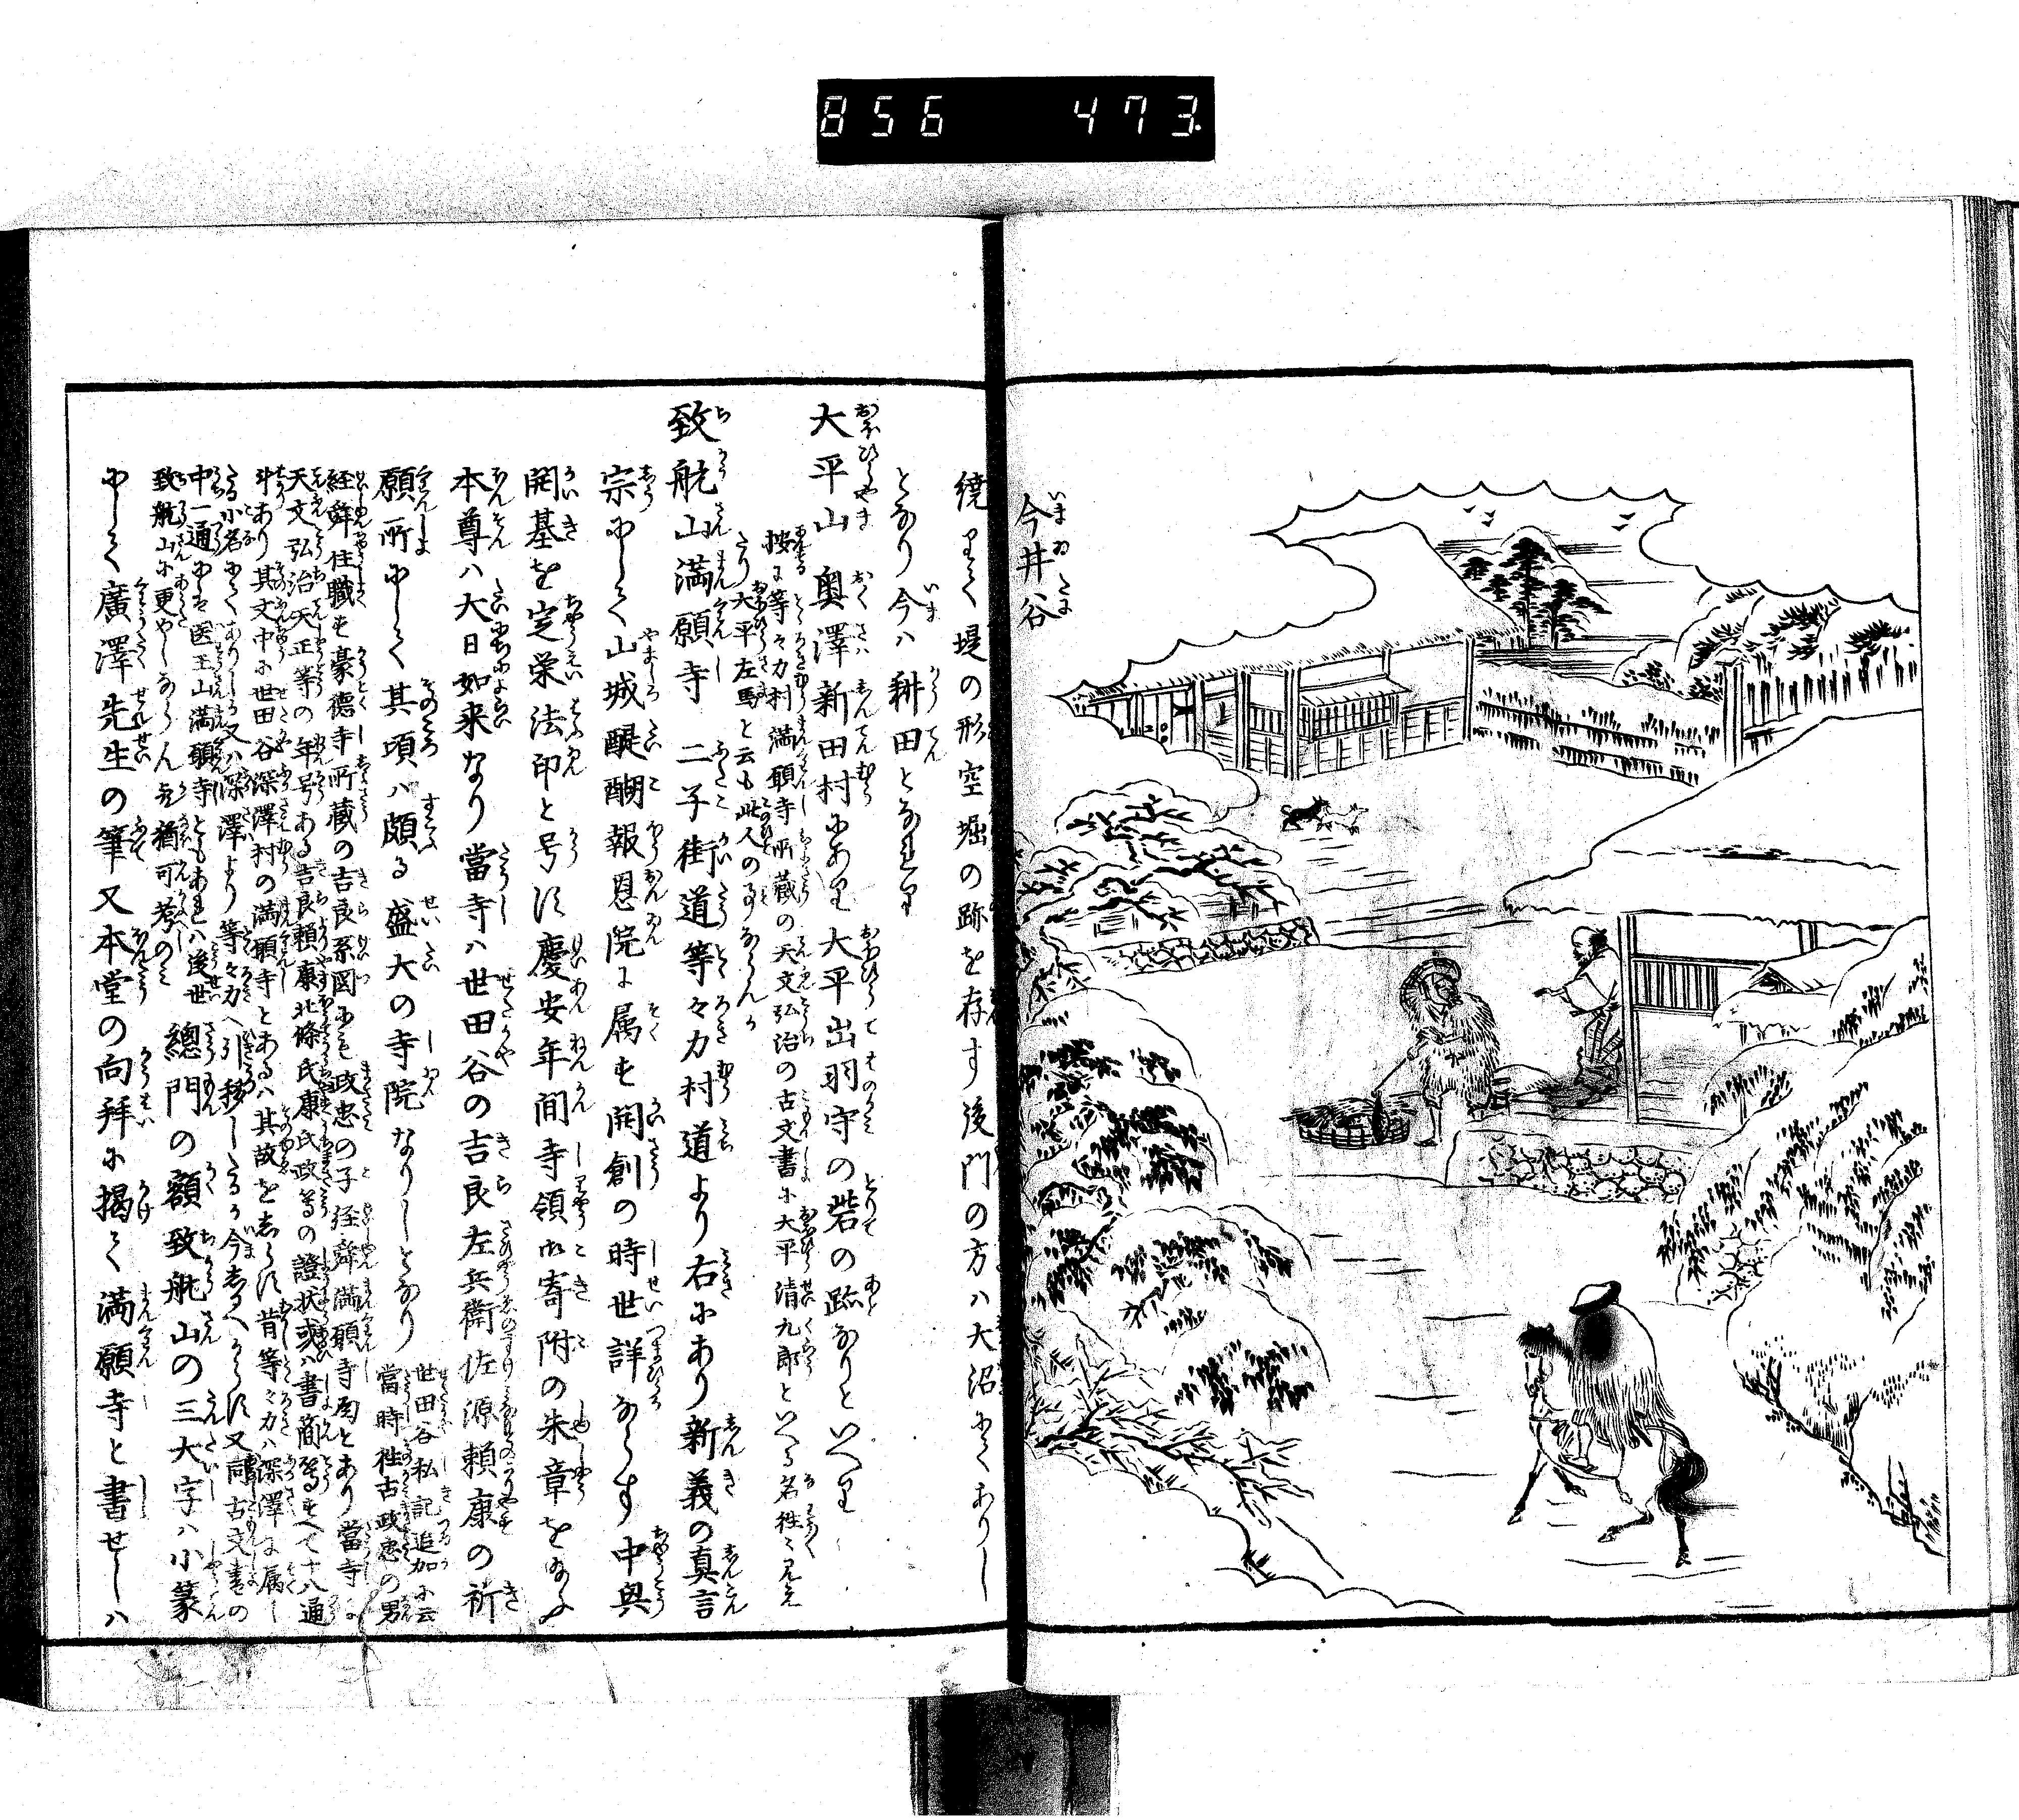 856 473
今井谷
繞りて堤の形空堀の跡を存す後門の方ハ大沼にてありし
となり今ハ耕田となれり
大平山 奥澤新田村にあり大平出羽守の砦の跡なりといへり
按に等々力村満願寺所蔵の天文弘治の古文書に大平清九郎といへる名往々見え
たり大平左馬と云も此人の事ならんか
致航山満願寺 二子街道等々力村道より右にあり新義の真言
宗にして山城醍醐報恩院に属す開創の時世詳ならす中興
開基を定栄法印と号す慶安年間寺領御寄附の朱章を給ふ
本尊ハ大日如来なり當寺ハ世田谷の吉良左兵衛佐源頼康の祈
願所にして其頃ハ頗る盛大の寺院なりしとなり
世田谷私記追加に云
當時住古政忠の男
経舜住職す豪徳寺所蔵の吉良系図にも政忠の子経舜満願寺閑とあり當寺に
天文弘治天正等の年号ある吉良頼康北條氏康氏政等の證状或ハ書簡等すへて十八通
斗あり其文中に世田谷深澤村の満願寺とあるハ其故をしらす昔等々力ハ深澤に属し
たる小名にてありしか又ハ深澤より等々力へ引移したるか今考へからす又同古文書の
中一通にハ医王山満願寺ともあれハ後世
致航山に更めしならん歟猶可考のミ
總門の額致航山の三大字ハ小篆
にして廣澤先生の筆又本堂の向拜に掲て満願寺と書せしハ